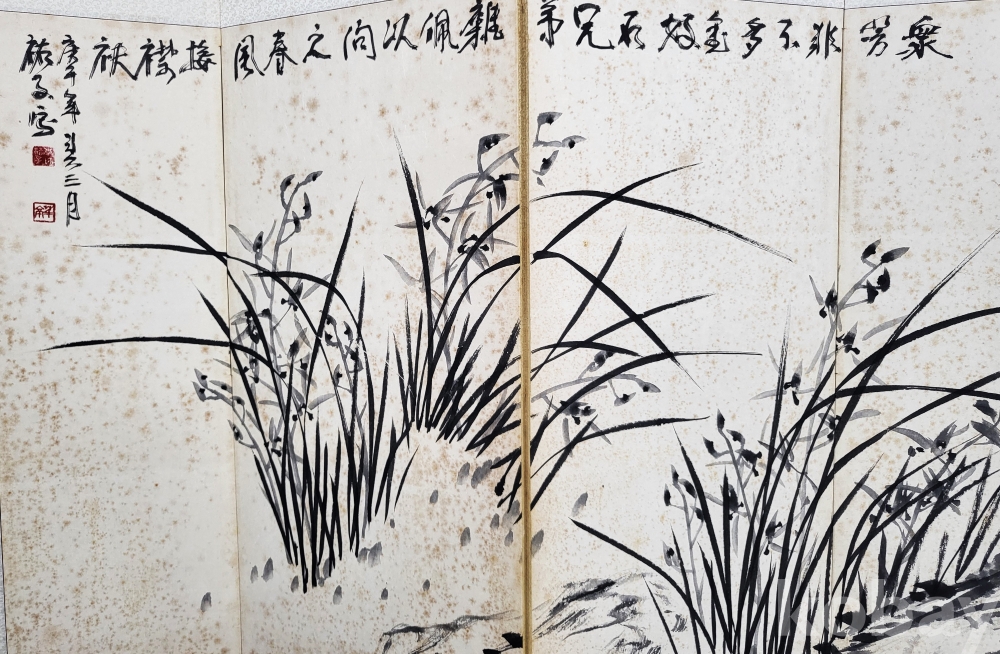 衆芳非不多兄弟雜佩以問之春風接襟袂
庚午年三月
kobay